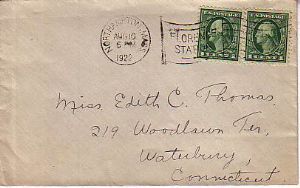 NORTHAMPTON, MASS.
AUG 10
6 PM
1922
U.S. POSTAGE
U.S. POSTAGE
Miss Edith C. Thomas.
219 Woodlawn Ter,
Waterbury,
Connecticut.